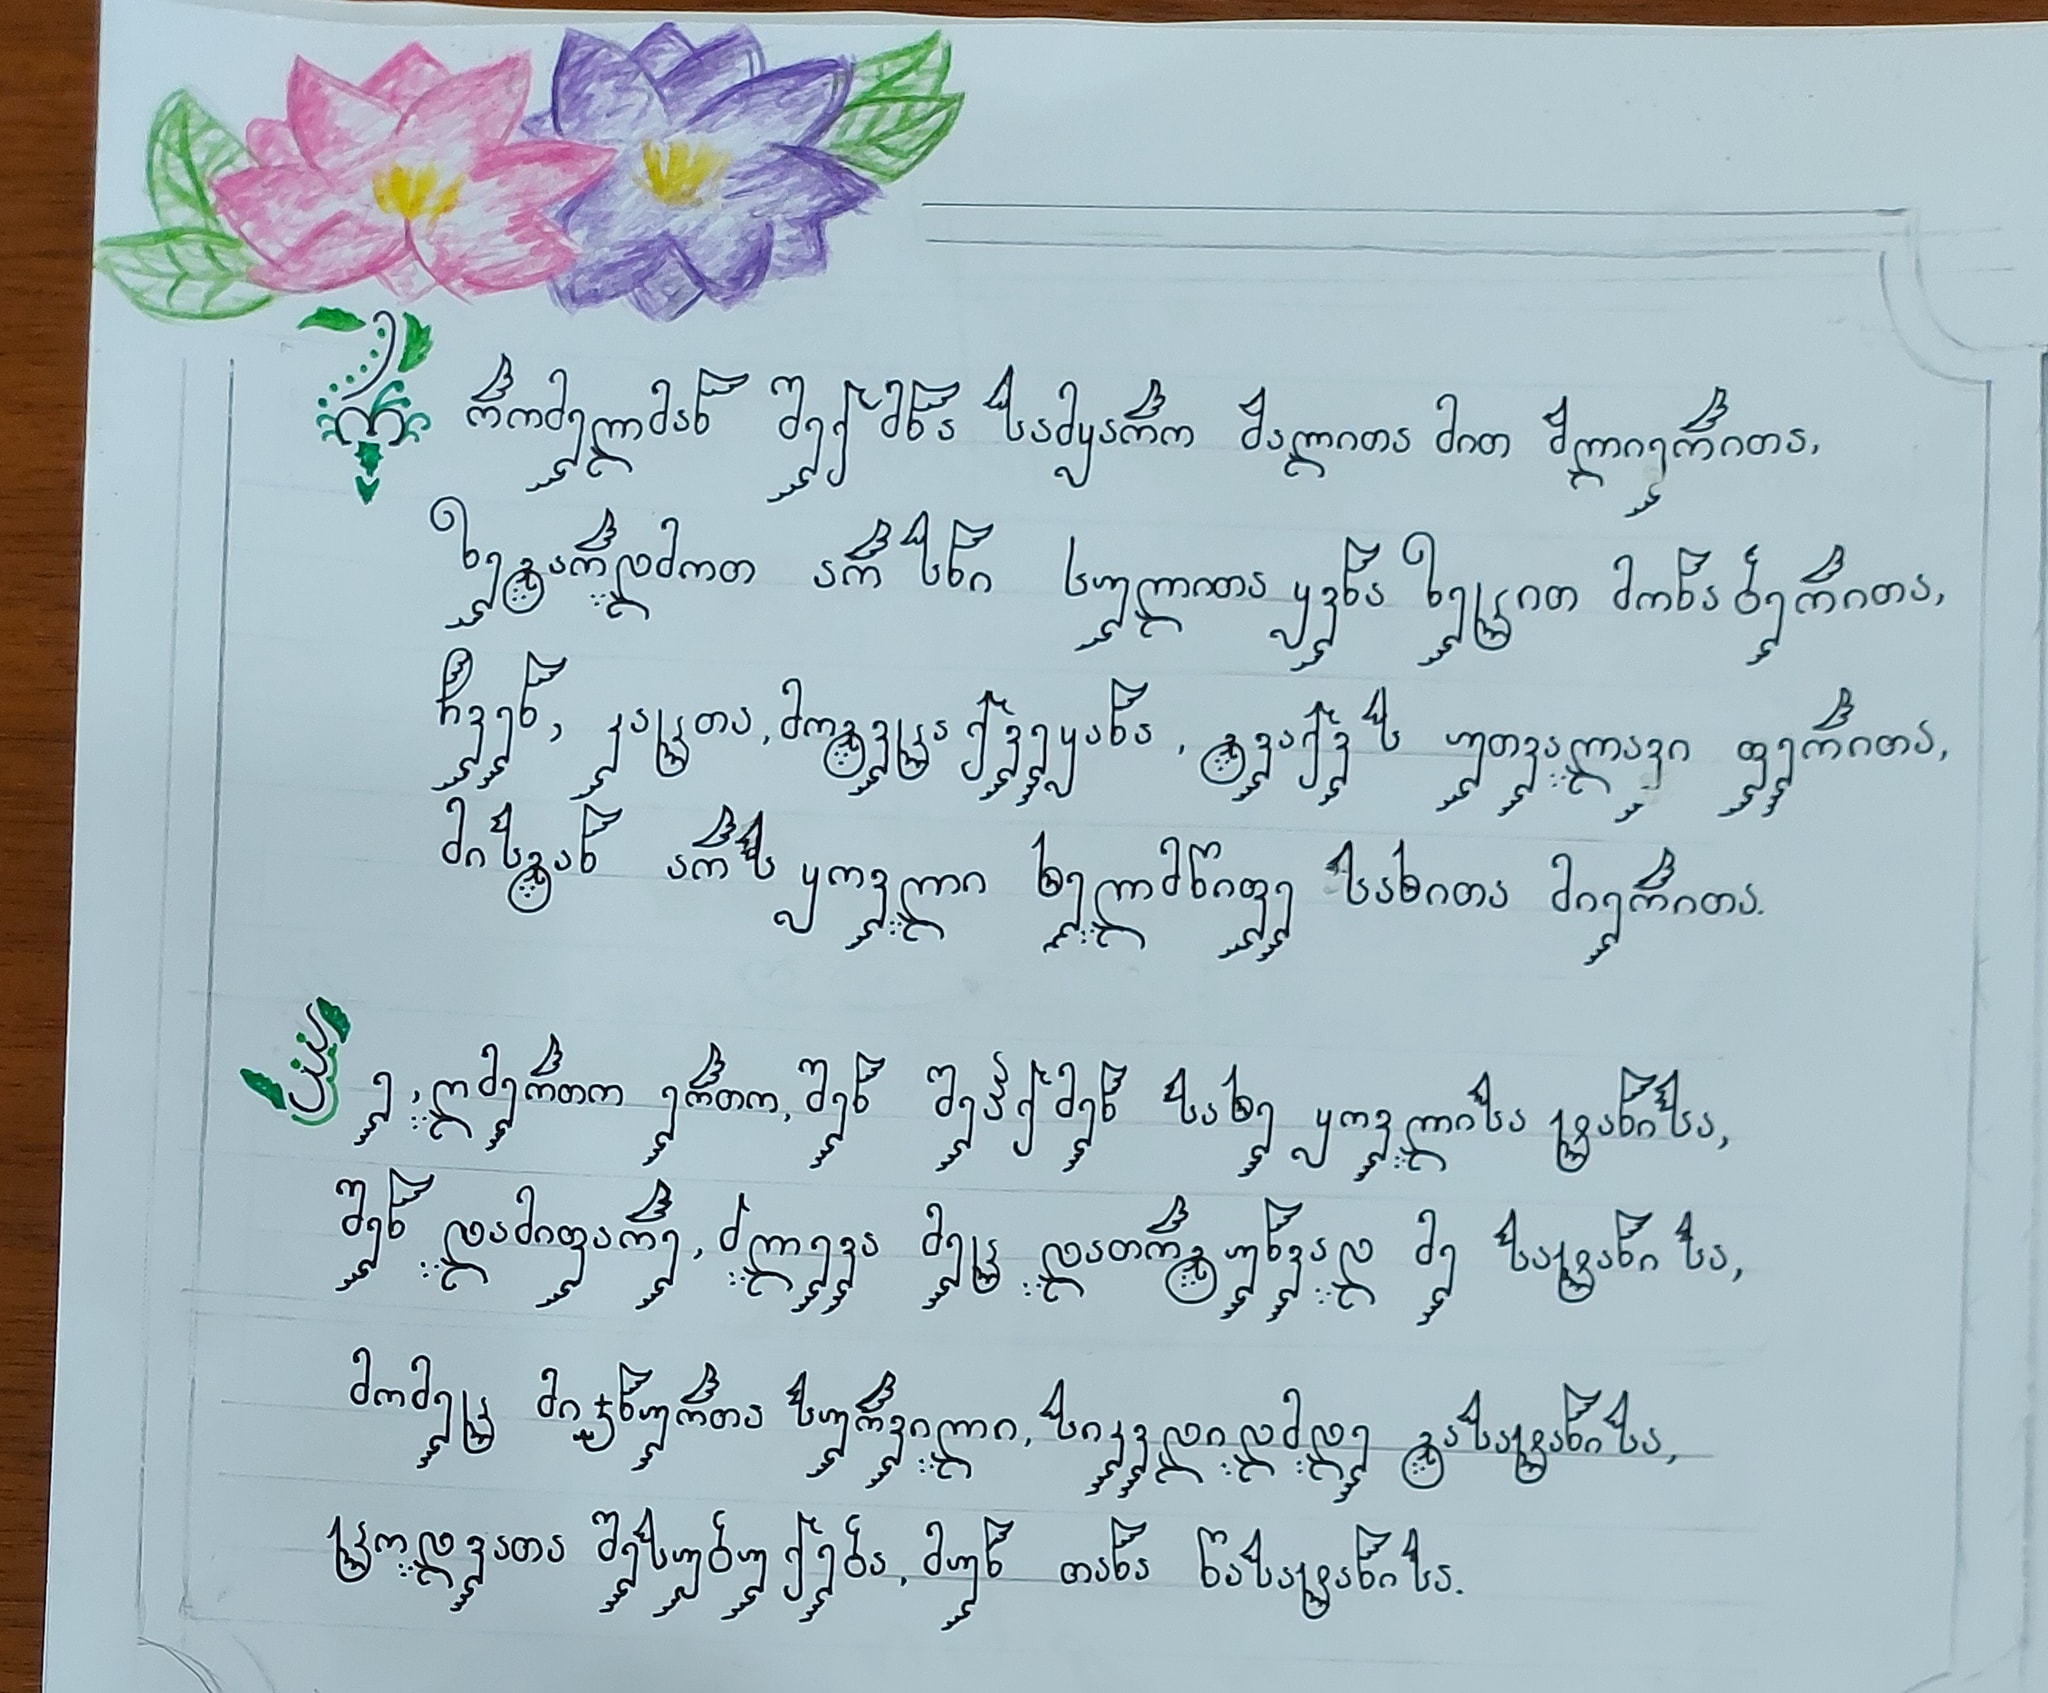 რომელმან შექმნა სამყარო ძალითა მით ძლიერითა,
ზეგარდმოთ არსნი სულითა ყვნა ზეცით მონაბერითა,
ჩვენ, კაცთა, მოგვცა ქვეყანა, გვაქვს უთვალავი ფერითა,
მისგან არს ყოვლი ხელმწიფე სახითა მიერითა.
ჰე, ღმერთო ერთო, შენ შეჰქმენ სახე ყოვლისა ტანისა,
შენ დამიფარე, ძლევა მეც დათრგუნვად მე სატანისა,
მომეც მიჯნურთა სურვილი, სიკვდიდმდე გასატანისა,
ცოდვათა შესუბუქება, მუნ თანა წასატანისა.